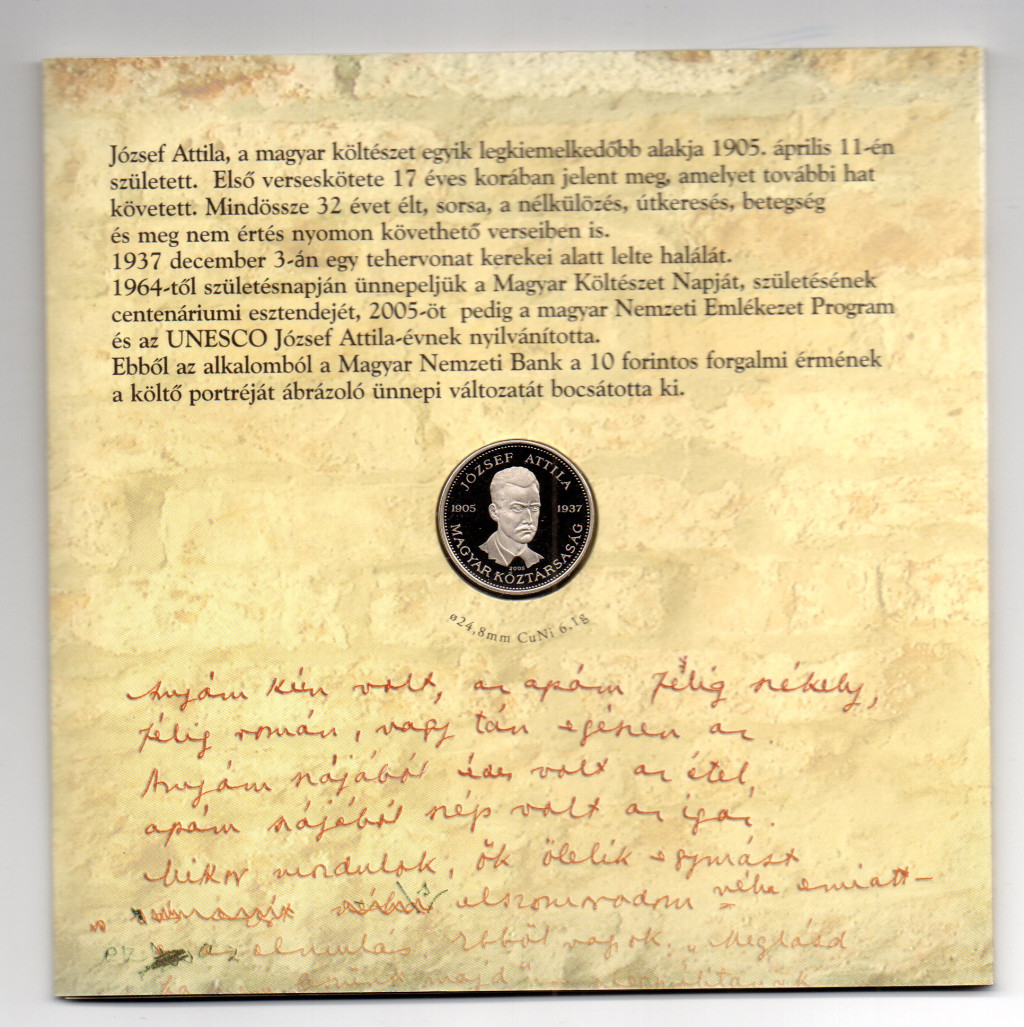 József Attila, a magyar költészet egyik legkiemelkedőbb alakja 1905. április 11-én
született. Első verseskötete 17 éves korában jelent meg, amelyet további hat
követett. Mindössze 32 évet élt, sorsa, a nélkülözés, útkeresés, betegség
és meg nem értés nyomon követhető verseiben is.
1937 december 3-án egy tehervonat kerekei alatt lelte halálát.
1964-től születésnapján ünnepeljük a Magyar Költészet Napját, születésének
centenáriumi esztendejét, 2005-öt pedig a magyar Nemzeti Emlékezet Program
és az UNESCO József Attila-évnek nyilvánította.
Ebből az alkalomból a Magyar Nemzeti Bank a 10 forintos forgalmi érmének
a költő portréját ábrázoló ünnepi változatát bocsátotta ki.
JÓZSEF ATTILA
1905 1937
2005
MAGYAR KÖZTÁRSASÁG
ø24,8mm CuNi 6,1g
Anyám kún volt, az apám félig székely,
félig román, vagy tán egészen az.
Anyám szájából édes volt az étel,
apám szájából szép volt az igaz.
Mikor mozdulok, ők ölelik egymást
elszomorodom néha emiatt –
ez az elmulás. Ebből vagyok. „Meglásd
ha majd